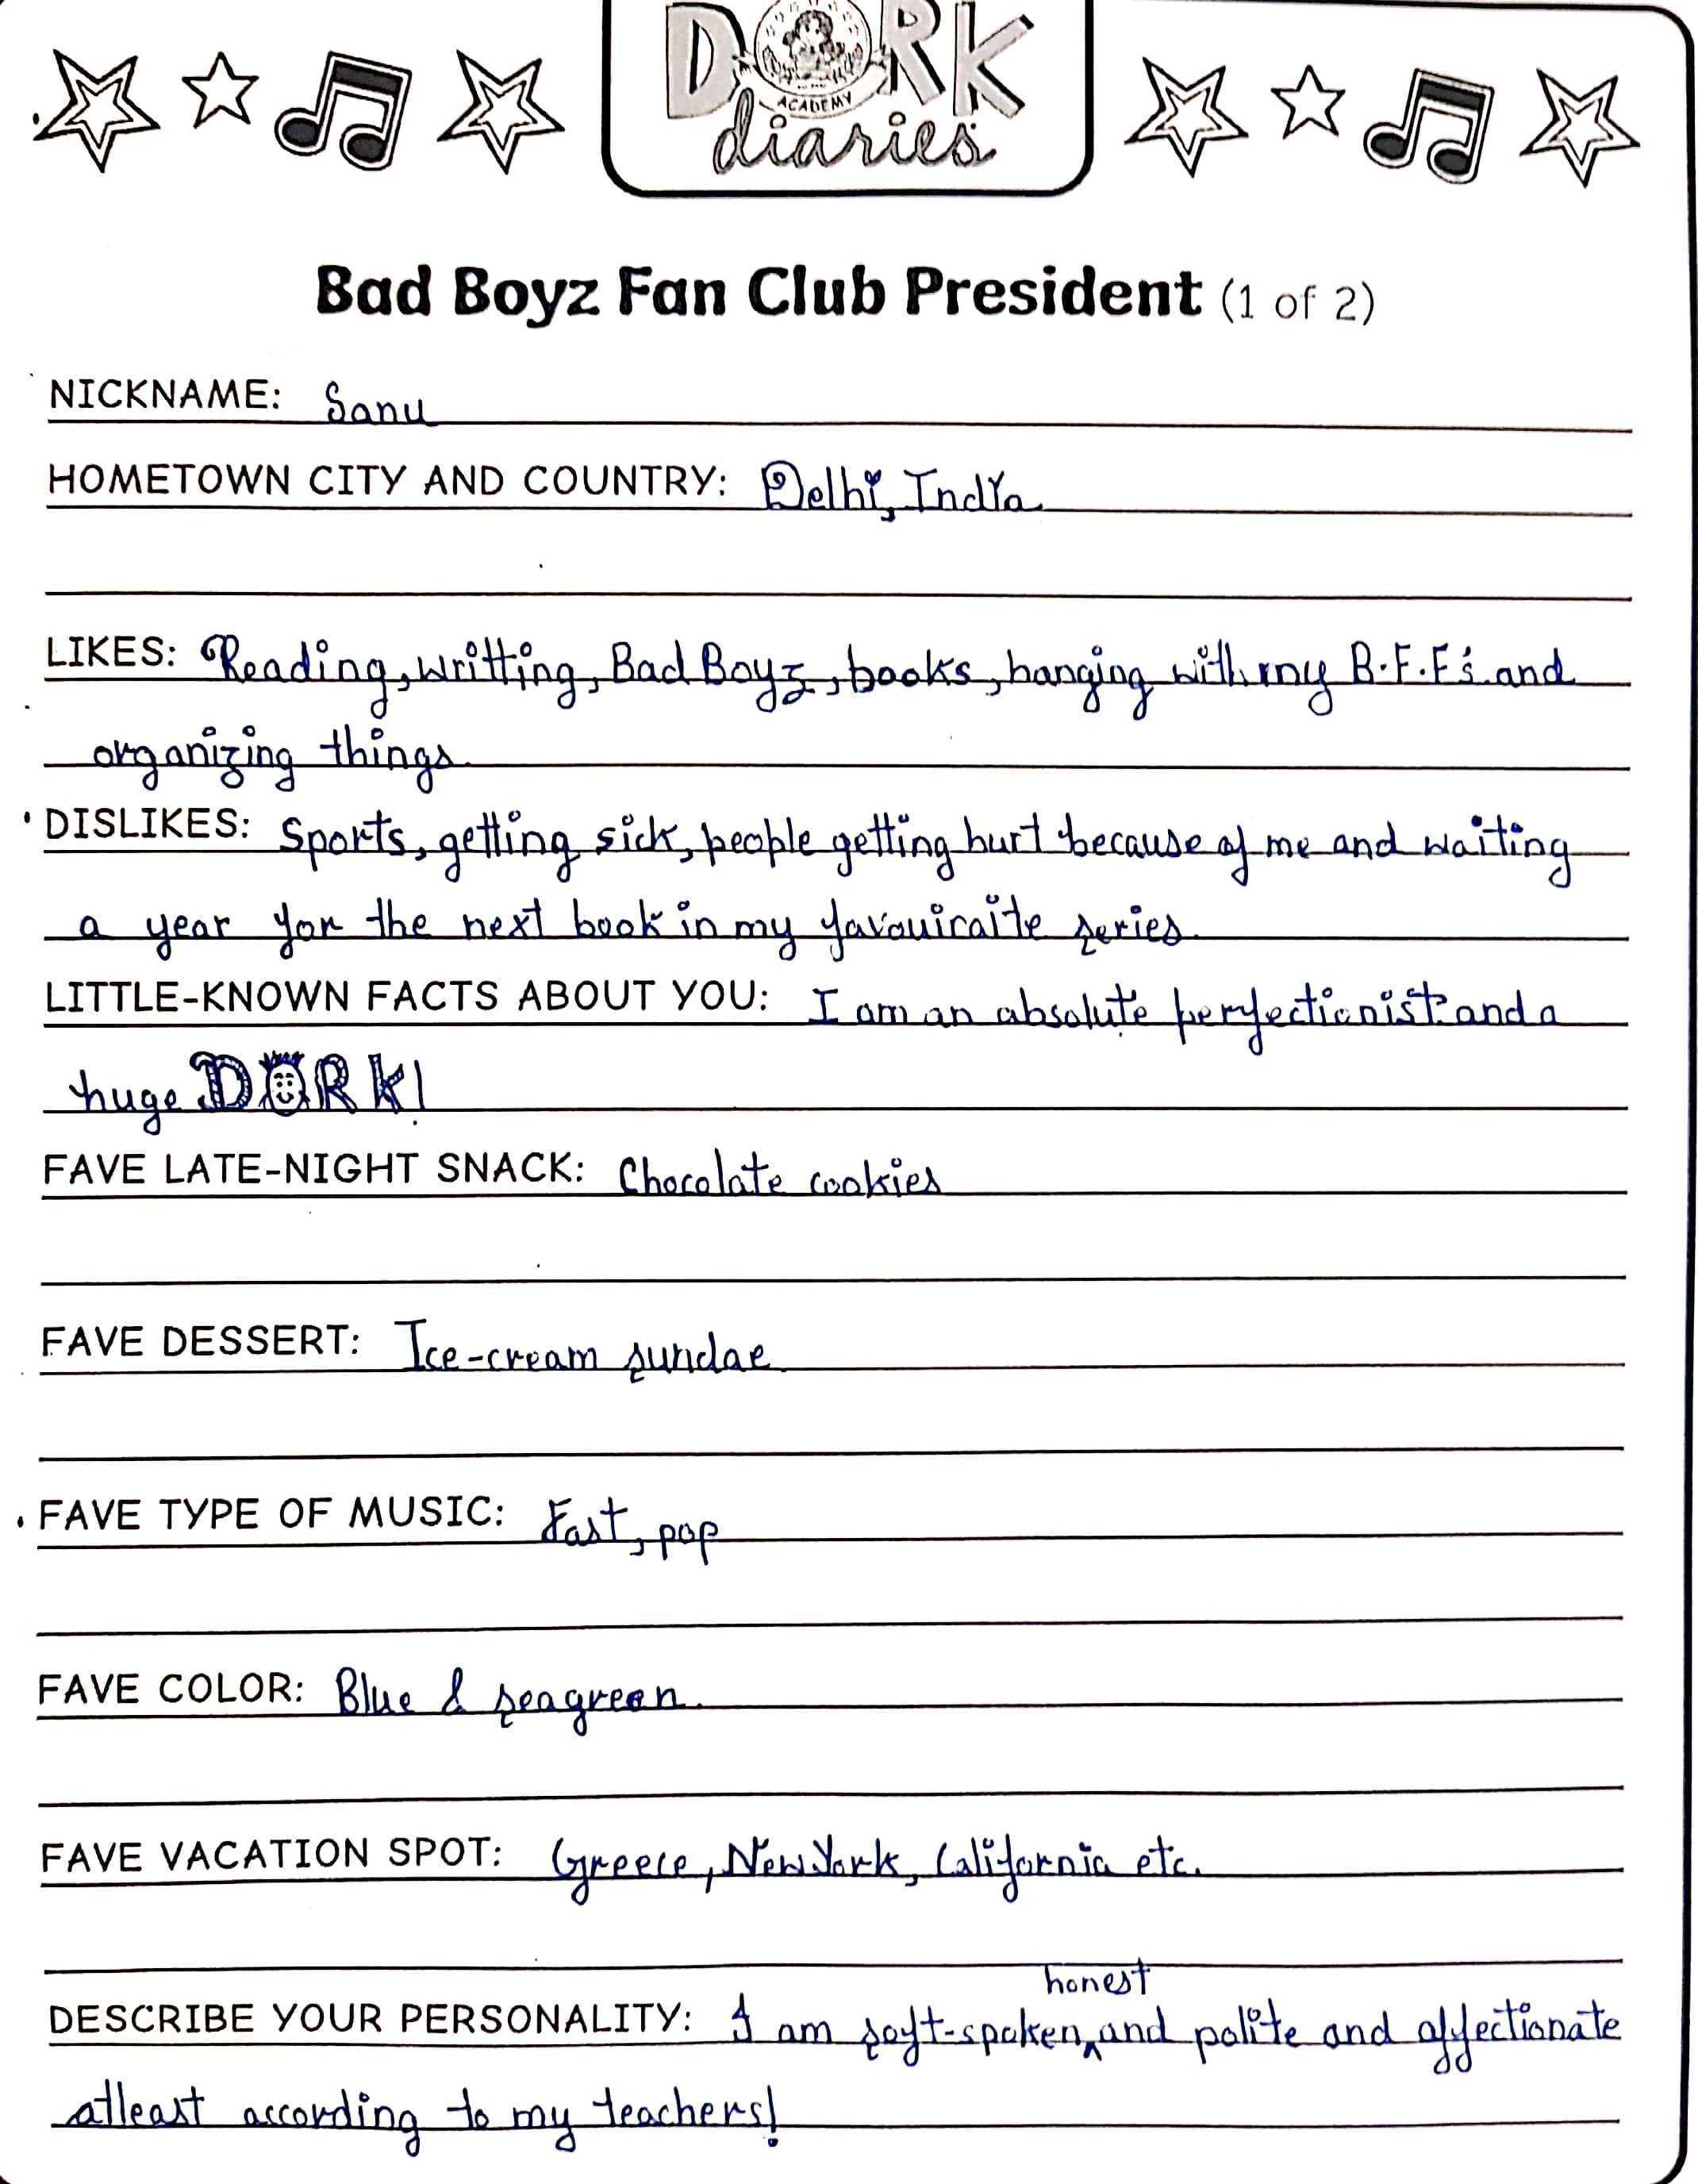 DORK
ACADEMY
diaries
Bad Boyz Fan Club President (1 of 2)
NICKNAME: Sanu
HOMETOWN CITY AND COUNTRY: Delhi, India
LIKES: Reading, writting, Bad Boyz, books, hanging with my B.F.F's and
organizing things
DISLIKES: Sports, getting sick, people getting hurt because of me and waiting
a year for the next book in my favouiraite series
LITTLE-KNOWN FACTS ABOUT YOU: I am an absolute perfectionist and a
huge DORK!
FAVE LATE-NIGHT SNACK: Chocolate cookies
FAVE DESSERT: Ice-cream sundae
FAVE TYPE OF MUSIC: Fast, pop
FAVE COLOR: Blue & seagreen.
FAVE VACATION SPOT: Greece, New York, California etc.
honest
DESCRIBE YOUR PERSONALITY: I am soft-spoken, and polite and affectionate
atleast according to my teachers!